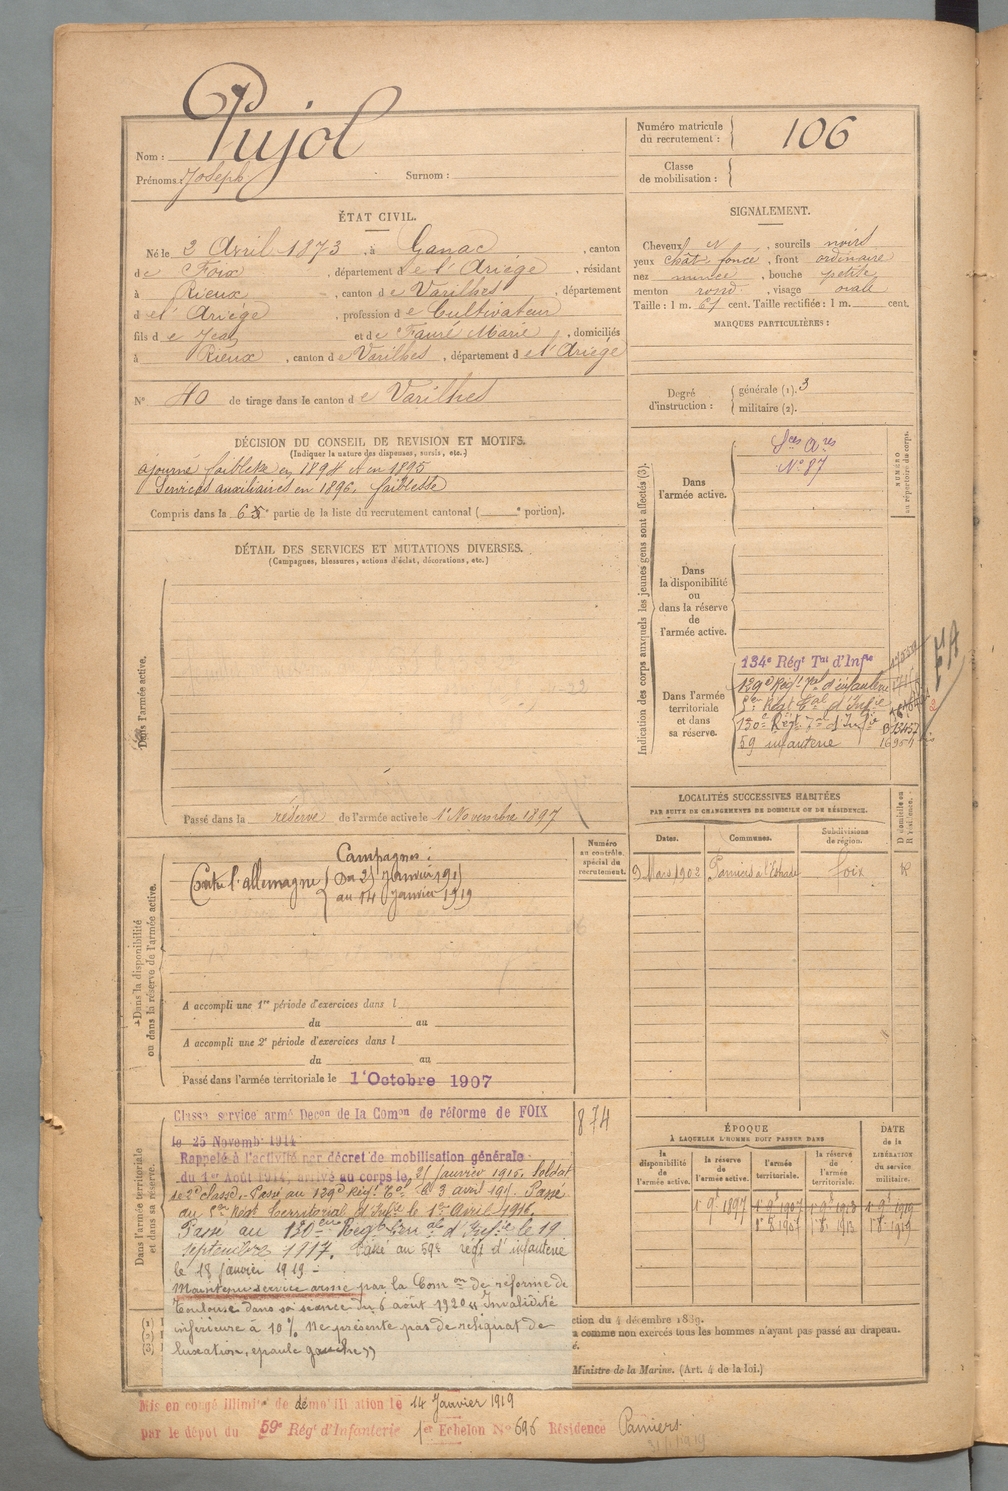 Pujol
Nom :
Prénoms : Joseph Surnom :
Numéro matricule du recrutement : 106
Classe de mobilisation :
ÉTAT CIVIL.
Né le 2 Avril 1873, à Ganac, canton
de Foix, département de l'Ariège, résidant
à Rieux, canton de Varilhes, département
de l'Ariège, profession de Cultivateur
fils de Jean et de Fauré Marie, domiciliés
à Rieux, canton de Varilhes, département de l'Ariège
N° 40 de tirage dans le canton de Varilhes
SIGNALEMENT.
Cheveux et, sourcils noirs
yeux chât. foncé, front ordinaire
nez mince, bouche petite
menton rond, visage ovale
Taille : 1 m. 61 cent. Taille rectifiée : 1 m. cent.
MARQUES PARTICULIÈRES :
Degré d'instruction : générale (1). 3
militaire (2).
DÉCISION DU CONSEIL DE REVISION ET MOTIFS.
(Indiquer la nature des dispenses, sursis, etc.)
ajourné faiblesse en 1894 et en 1895
Services auxiliaires en 1896. faiblesse
Compris dans la 6e partie de la liste du recrutement cantonal ( e portion).
DÉTAIL DES SERVICES ET MUTATIONS DIVERSES.
(Campagnes, blessures, actions d'éclat, décorations, etc.)
Dans l'armée active.
Passé dans la réserve de l'armée active le 1er Novembre 1897
Indication des corps auxquels les jeunes gens sont affectés (3).
NUMÉRO au répertoire du corps.
Dans l'armée active.
Sces Ares
N° 87
Dans la disponibilité ou dans la réserve de l'armée active.
Dans l'armée territoriale et dans sa réserve.
134e Régt Tal d'Infie
129e Régt Tal d'infanterie
Régt Tal d'Infie
130e Régt Tal d'Infie
59 infanterie
LOCALITÉS SUCCESSIVES HABITÉES
PAR SUITE DE CHANGEMENTS DE DOMICILE OU DE RÉSIDENCE.
D domicile ou R résidence.
Dates. Communes. Subdivisions de région.
9 Mars 1902 Pamiers à l'Estrade Foix R
Dans la disponibilité ou dans la réserve de l'armée active.
Numéro au contrôle spécial du recrutement.
Campagnes :
Contre l'allemagne du 21 Janvier 1915
au 14 Janvier 1919
A accompli une 1re période d'exercices dans l
du au
A accompli une 2e période d'exercices dans l
du au
Passé dans l'armée territoriale le 1er Octobre 1907
Dans l'armée territoriale et dans sa réserve.
874
Classé service armé Décon de la Comon de réforme de FOIX
le 25 Novembre 1914
Rappelé à l'activité par décret de mobilisation générale
du 1er Août 1914, arrivé au corps le 21 janvier 1915, Soldat
de 2e classe. Passé au 129e Régt Tal le 3 avril 191. Passé
au Régt territorial d'Infie le 1er Avril 1916.
Passé au 130eme Régt Terral d'Infie le 19
septembre 1917. Passé au 59e régt d'infanterie
le 18 janvier 1919 -
Maintenu service armé par la Comon de réforme de
Toulouse dans sa séance du 6 août 1920 « Invalidité
inférieure à 10 % Ne présente pas de reliquat de
luxation, epaule gauche »
ÉPOQUE
À LAQUELLE L'HOMME DOIT PASSER DANS
DATE de la LIBÉRATION du service militaire.
la disponibilité de l'armée active.
la réserve de l'armée active.
l'armée territoriale.
la réserve de l'armée territoriale.
1er 9e 1897 1er 9e 1907 1er 9e 1913 1er 9e 1919
1er 8 1907 1er 8 1913 1er 8 1919
(1)
(2)
(3)
ction du 4 décembre 1889.
a comme non exercés tous les hommes n'ayant pas passé au drapeau.
Ministre de la Marine. (Art. 4 de la loi.)
Mis en congé illimité de démobilisation le 14 Janvier 1919
par le dépot du 59e Régt d'Infanterie 1er Echelon N° 696 Résidence Pamiers